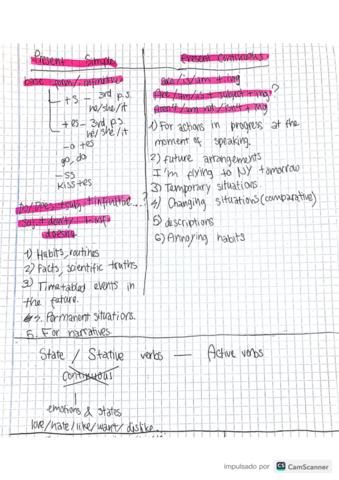 Present Simple
base form / infinitive
+ s - 3rd p.s.
he/she/it
+ es - 3rd p.s.
he/she/it
-o +es
go, do
-ss
kiss+es
do/Does + subj + infinitive...?
subj + don't / + inf
doesn't
1) Habits, routines
2) Facts, scientific truths
3) Timetabled events in
the future.
Permanent situations.
5. For narratives
Present Continuous
Are/is/am + ing
Are/am/is + subject + ing?
Aren't/am not/isn't + ing
1) For actions in progress at the
moment of speaking.
2) future arrangements
I'm flying to NY tomorrow
3) Temporary situations.
4) Changing situations (comparative)
5) descriptions
6) Annoying habits
State / Stative verbs — Active verbs
continuous
emotions & states
love/hate/like/want/dislike...
impulsado por CS CamScanner